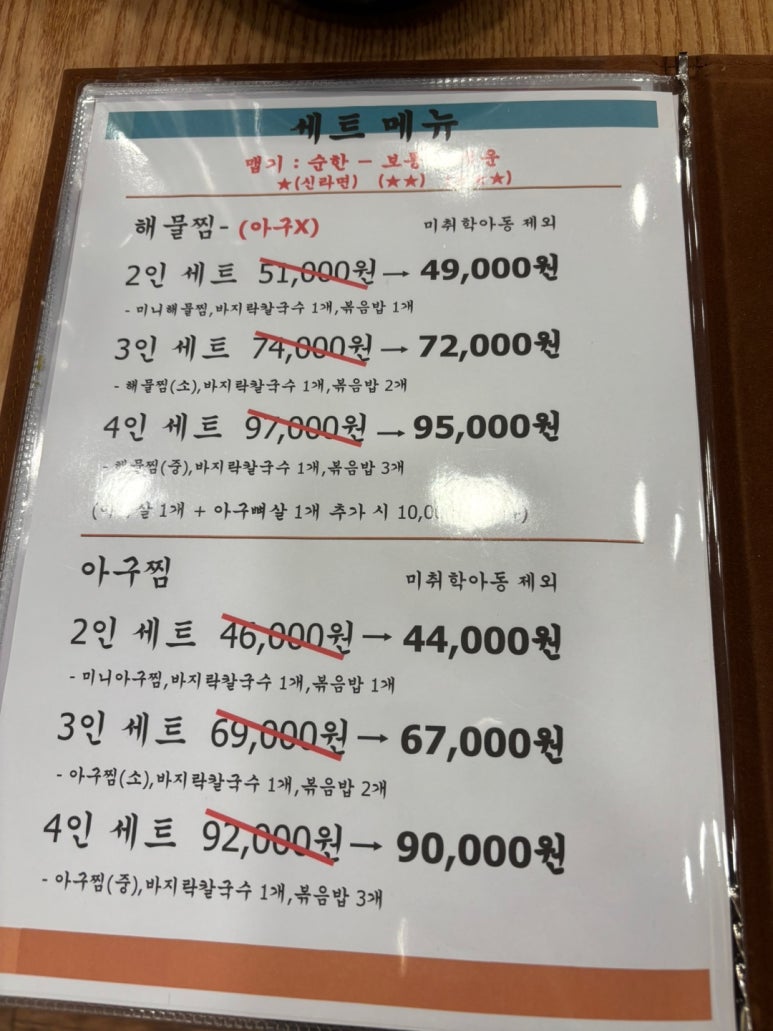 세트메뉴
맵기 : 순한 - 보통
★(신라면) (★★)
해물찜- (아구X) 미취학아동 제외
2인 세트 51,000원→49,000원
- 미니해물찜,바지락칼국수 1개,볶음밥 1개
3인 세트 74,000원→72,000원
- 해물찜(소),바지락칼국수 1개,볶음밥 2개
4인 세트 97,000원→95,000원
- 해물찜(중),바지락칼국수 1개,볶음밥 3개
1개 + 아구뼈살 1개 추가 시
아구찜 미취학아동 제외
2인 세트 46,000원→44,000원
- 미니아구찜,바지락칼국수 1개,볶음밥 1개
3인 세트 69,000원→67,000원
- 아구찜(소),바지락칼국수 1개,볶음밥 2개
4인 세트 92,000원→90,000원
- 아구찜(중),바지락칼국수 1개,볶음밥 3개